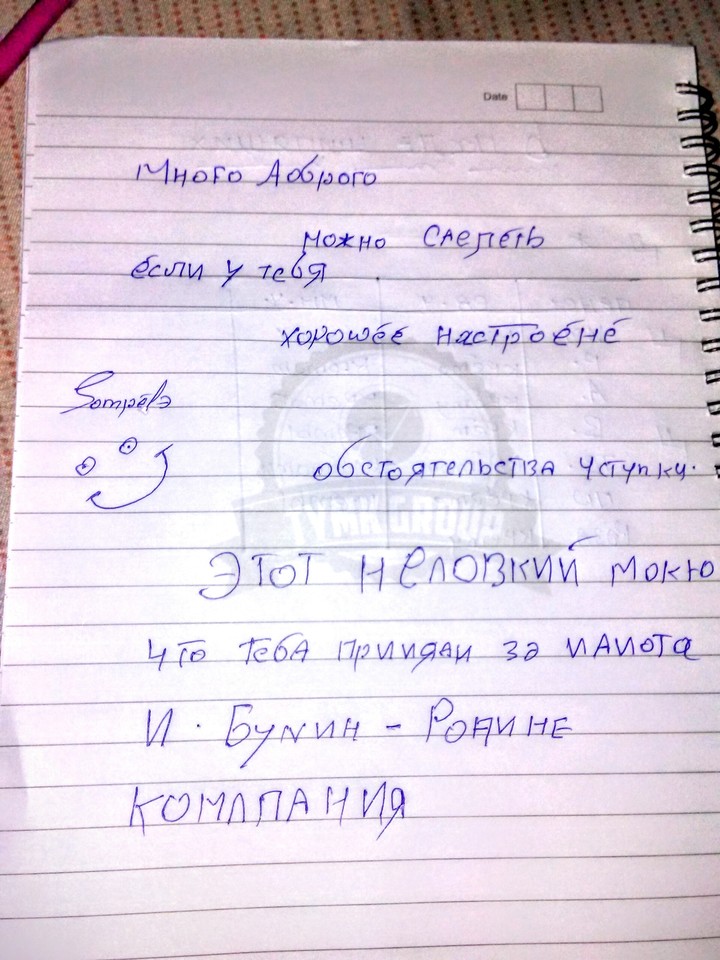 Date
Много Доброго
можно слепеть
если у тебя
хорошее настроене
обстоятельства уступки.
TYMK GROUP
Этот неловкий мокю
что теба приидаи за идиота
И. Бунин - Родине
КОМПАНИЯ